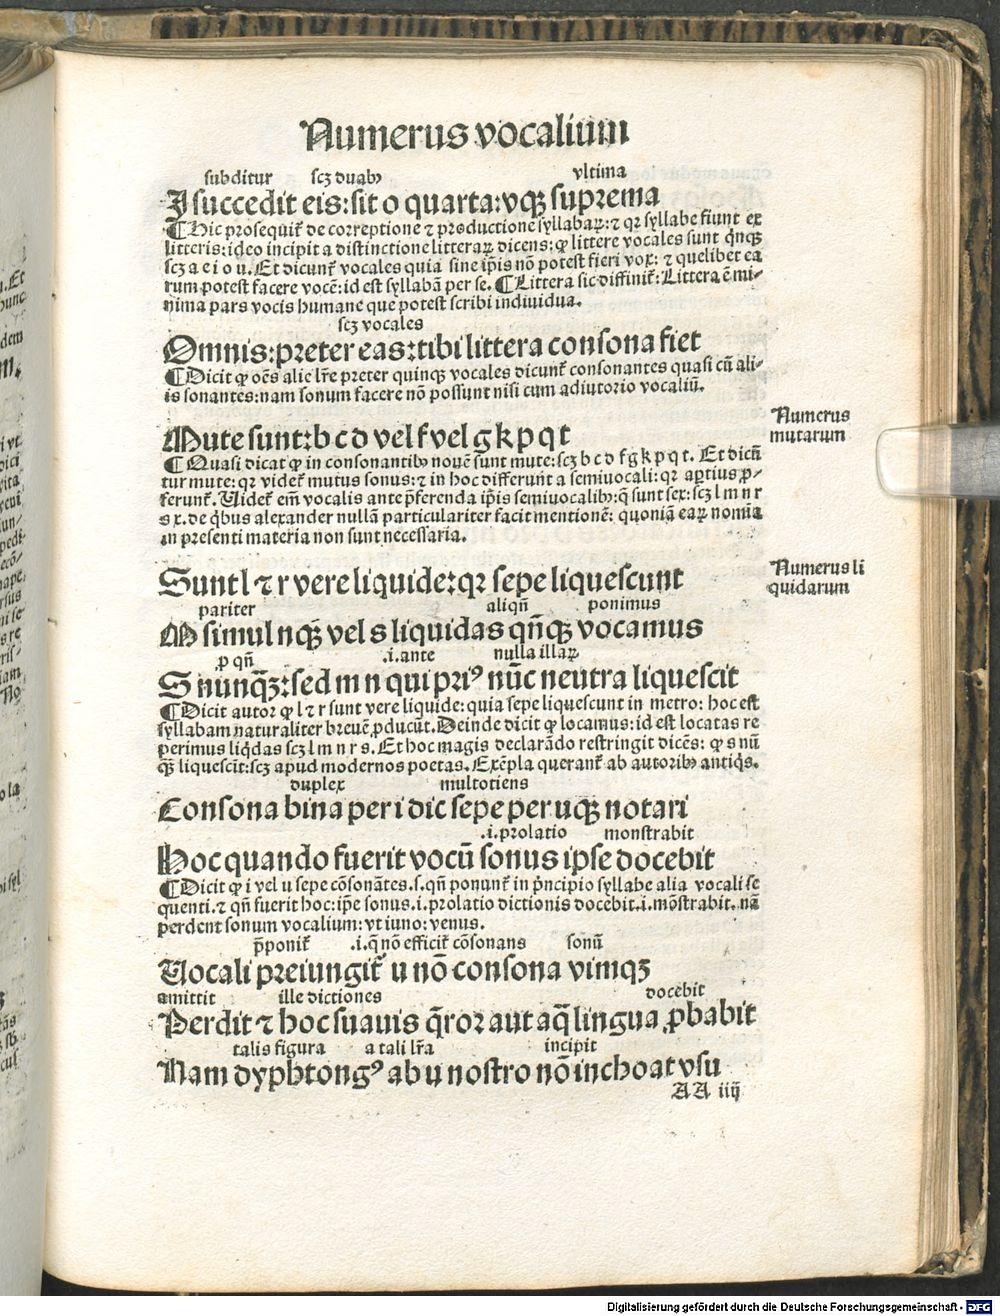 Numerus vocalium
subditur scʒ duabꝰ vltima
I succedit eis: sit o quarta: vqꝫ suprema
¶ Hic prosequit᷑ de correptione ⁊ productione syllabaꝝ: ⁊ qꝛ syllabe fiunt ex
litteris: ideo incipit a distinctione litteraꝝ dicens: ꝙ littere vocales sunt qͥnqꝫ
scʒ a e i o u. Et dicunt᷑ vocales quia sine ip̄is nō potest fieri vox: ⁊ quelibet ea
rum potest facere vocē: id est syllabā per se. ¶ Littera sic diffinit᷑: Littera ē mi⸗
nima pars vocis humane que potest scribi individua.
scʒ vocales
Omnis: preter eas: tibi littera consona fiet
¶ Dicit ꝙ oēs alie lr̄e preter quinqꝫ vocales dicunt᷑ consonantes quasi cū ali⸗
is sonantes: nam sonum facere nō possunt nisi cum adiutorio vocaliū.
Numerus
mutarum
Mute sunt: b c d vel f vel g k p q t
¶ Quasi dicat ꝙ in consonantibꝰ novē sunt mute: scʒ b c d f g k p q t. Et dicū
tur mute: qꝛ videt᷑ mutus sonus: ⁊ in hoc differunt a semivocali: qꝛ aptius p̄⸗
ferunt᷑. Videt᷑ em̄ vocalis ante p̄ferenda ip̄is semivocalibꝰ: q̄ sunt sex: scʒ l m n r
s x. de qͥbus alexander nullā particulariter facit mentionē: quoniā eaꝝ nomīa
in presenti materia non sunt necessaria.
Numerus li
quidarum
Sunt l ⁊ r vere liquide: qꝛ sepe liquescunt
pariter aliqn̄ ponimus
M simul nqꝫ vel s liquidas qn̄qꝫ vocamus
ꝓ qn̄ .i. ante nulla illaꝝ
S nūnqꝫ: sed m n qui priꝰ nūc neutra liquescit
¶ Dicit autor ꝙ l ⁊ r sunt vere liquide: quia sepe liquescunt in metro: hoc est
syllabam naturaliter brevē ꝓducūt. Deinde dicit ꝙ locamus: id est locatas re
perimus liqͥdas scʒ l m n r s. Et hoc magis declarādo restringit dicēs: ꝙ s nū
qꝫ liquescit: scʒ apud modernos poetas. Exēpla querant᷑ ab autoribꝰ antiqͥs.
duplex multotiens
Consona bina per i dic sepe per uqꝫ notari
.i. prolatio monstrabit
Hoc quando fuerit vocū sonus ipse docebit
¶ Dicit ꝙ i vel u sepe cōsonātes. s. qn̄ ponunt᷑ in pͥncipio syllabe alia vocali se
quenti. ⁊ qn̄ fuerit hoc: ip̄e sonus .i. prolatio dictionis docebit .i. mōstrabit. nā
perdent sonum vocalium: vt iuno: venus.
p̄ponit᷑ .i. q̄ nō efficit᷑ cōsonans sonū
Vocali preiungit᷑ u nō consona vimqꝫ
amittit ille dictiones docebit
Perdit ⁊ hoc suavis q̄ror aut aq̄ lingua ꝓbabit
talis figura a tali lr̄a incipit
Nam dyphtongꝰ ab u nostro nō inchoat vsu
AA iiij
Digitalisierung gefördert durch die Deutsche Forschungsgemeinschaft - DFG